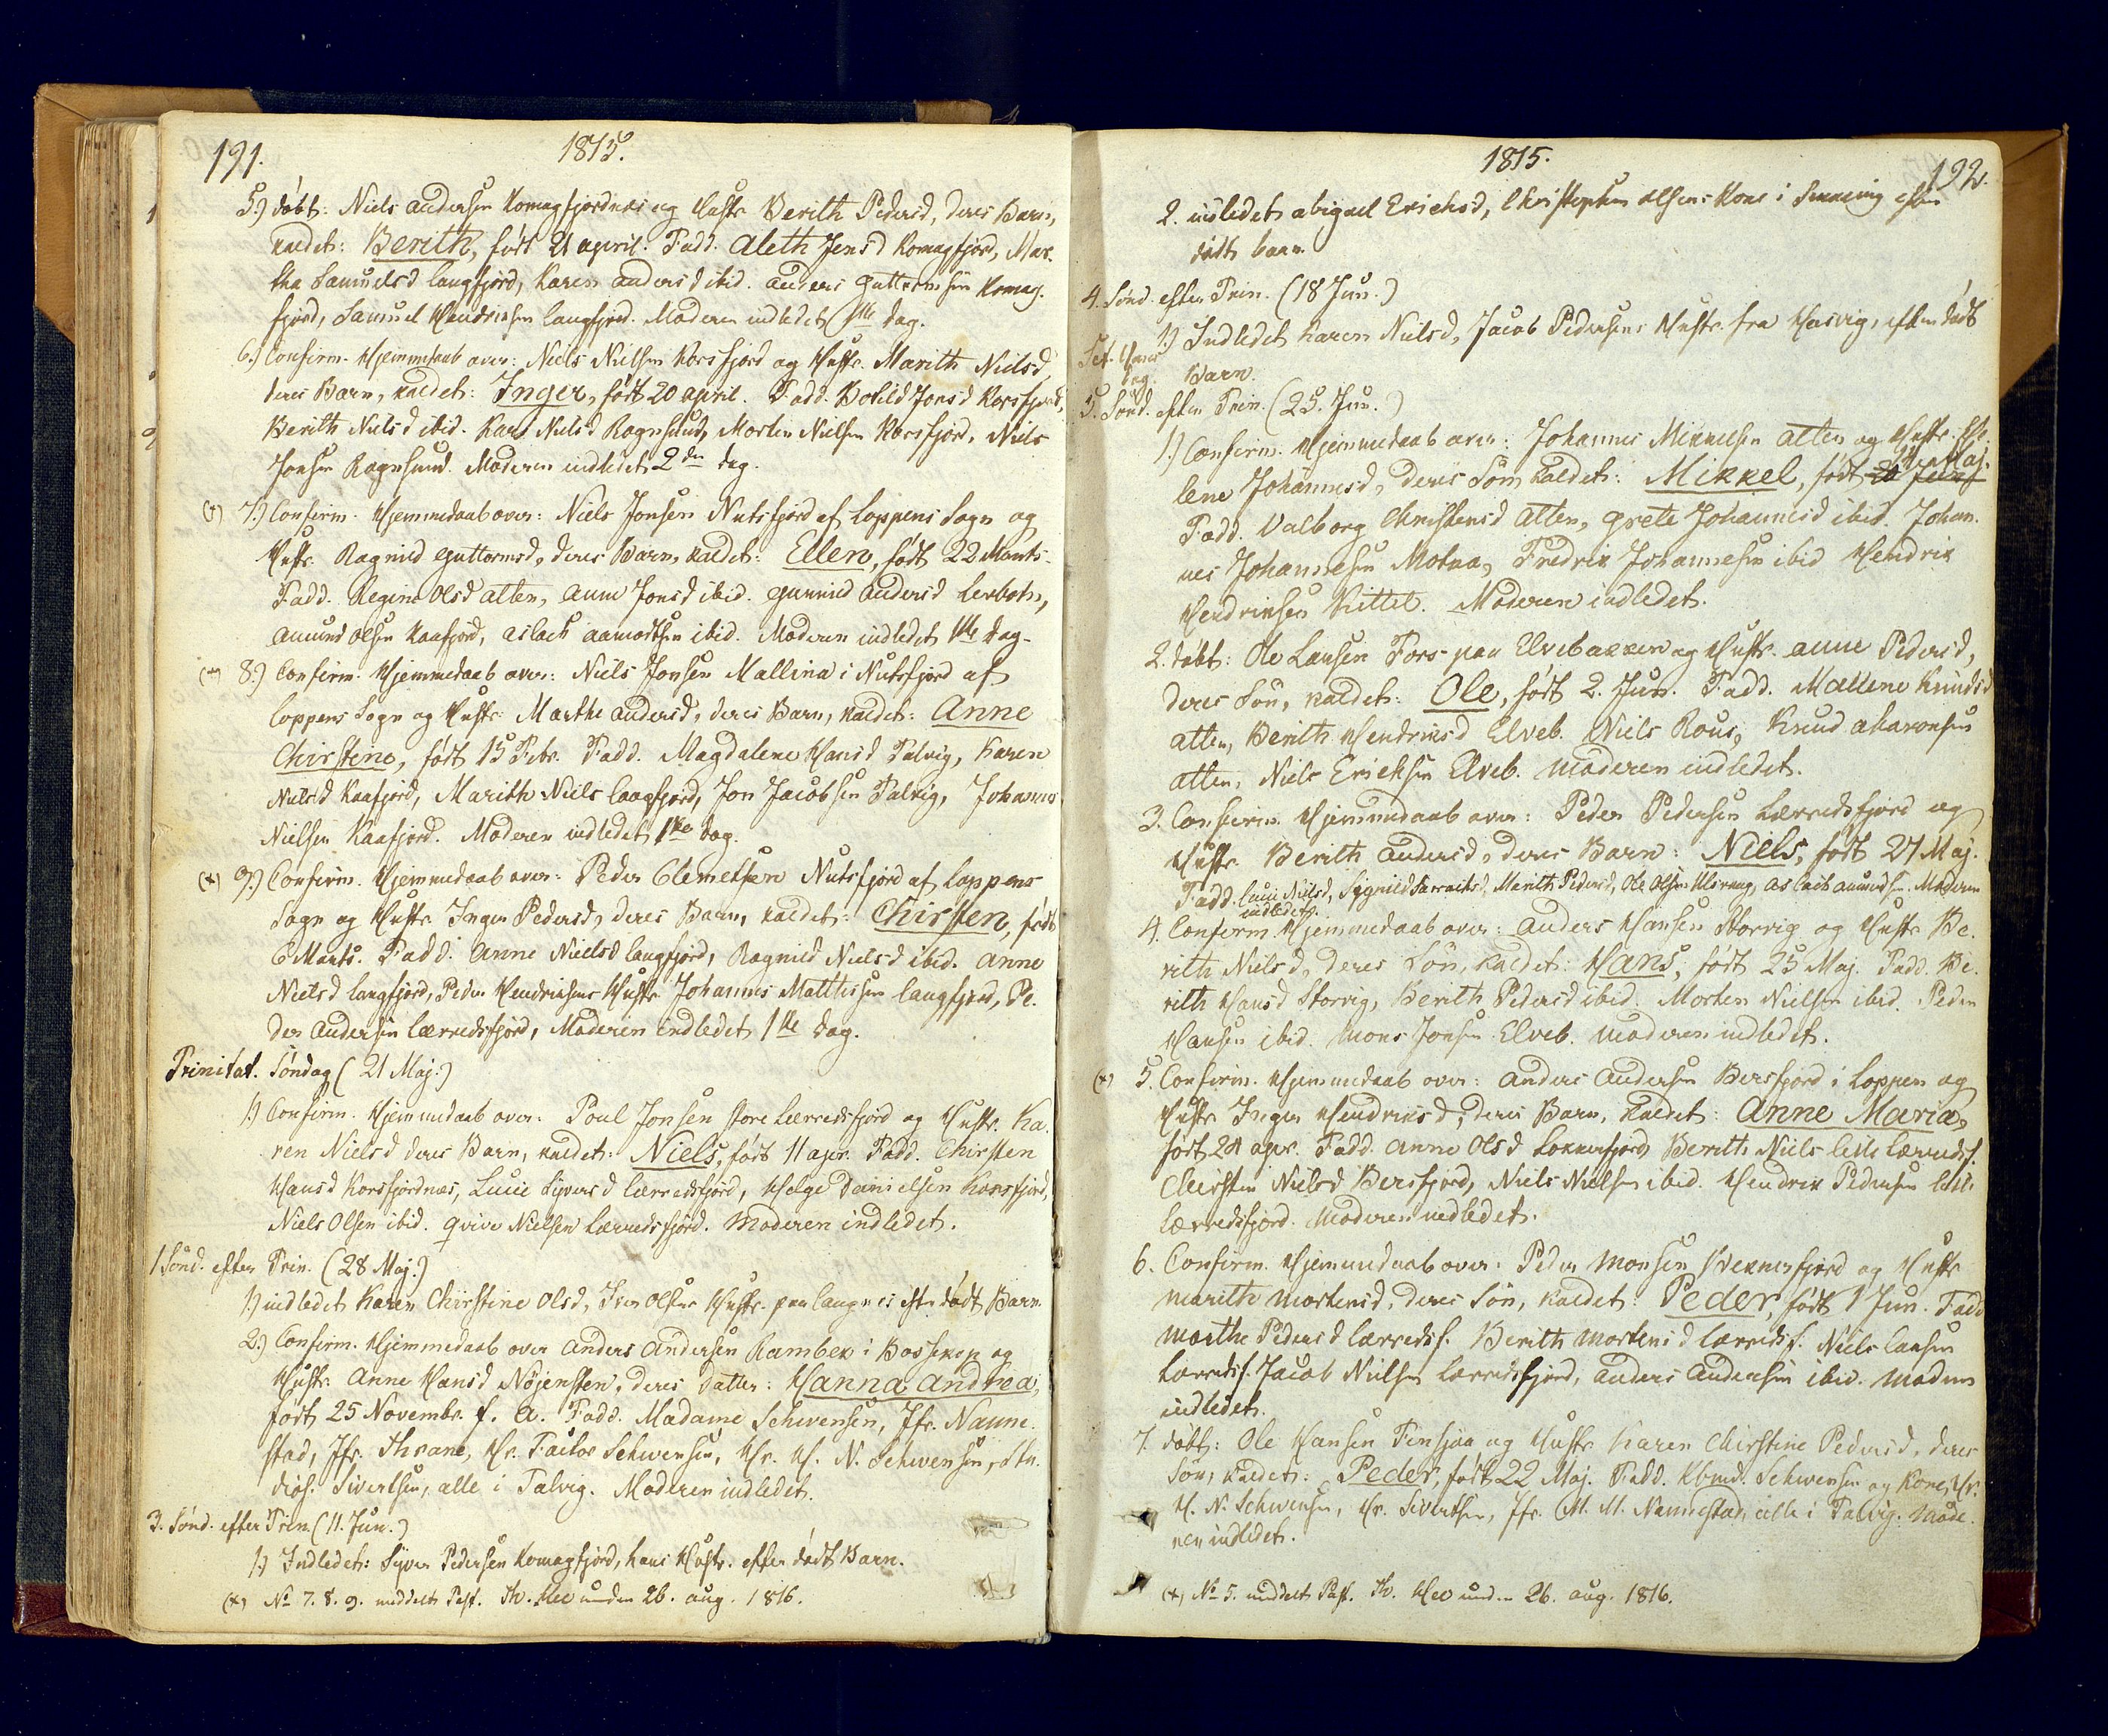 191.
1815.
5.) døbt: Niels Andersen Komagfjordnes og Hustr. Berith Pedersd, deres Barn,
kaldet: Berith, født 21 April. Fadd. Aleth Jensd Komagfjord, Mar-
tha Samuelsd Langfjord, Karen Andersd ibid. Anders Guttormsen Komag-
fjord, Samuel Hendrichsen Langfjord. Moderen indledet 1ste Dag.
6.) Confirm. Hjemmedaab over: Niels Nielsen Korsfjord og Hustr. Marith Nielsd,
deres Barn, kaldet: Inger, født 20 April. Fadd. Bolild Jonsd Korsfjord,
Berith Nielsd ibid. Kari Nielsd Rognsund, Morten Nielsen Korsfjord, Niels
Jonsen Rognsund. Moderen indledet 2den Dag.
(+) 7.) Confirm. Hjemmedaab over: Niels Jonsen Nutsfjord af Loppens Sogn og
Hustr. Ragnild Guttormsd, deres Barn, kaldet: Ellen, født 22 Marts.
Fadd. Regine Olsd Alten, Anne Jonsd ibid. Gunnild Andersd Lerbotn,
Amund Olsen Kaafjord, Aslach Aamodtsen ibid. Moderen indledet 1ste Dag.
(+) 8.) Confirm. Hjemmedaab over: Niels Jonsen Mallina i Nutsfjord af
Loppens Sogn og Hustr. Marthe Andersd, deres Barn, kaldet: Anne
Chirstine, født 15 Febr. Fadd. Magdalene Hansd Talvig, Karen
Nielsd Kaafjord, Marith Niels Langfjord, Jon Jacobsen Talvig, Johannes
Nielsen Kaafjord. Moderen indledet 1ste Dag.
(+) 9.) Confirm. Hjemmedaab over: Peder Clemetsen Nutsfjord af Loppens
Sogn og Hustr. Inger Pedersd, deres Barn, kaldet: Chirsten, født
6 Marts. Fadd. Anne Nielsd Langfjord, Ragnild Nielsd ibid. Anne
Nielsd Langfjord, Peder Hendrichsens Hustr. Johannes Matthisen Langfjord, Pe-
der Andersen Lærredsfjord, Moderen indledet 1ste Dag.
Trinitat. Søndag (21 Maj.)
1.) Confirm. Hjemmedaab over: Poul Jonsen Store Lærredsfjord og Hustr. Ka-
ren Nielsd deres Barn, kaldet: Niels, født 11 Apr. Fadd. Chirsten
Hansd Korsfjordnæs, Lucie Siversd Lærredsfjord, Helge Danielsen Korsfjord,
Niels Olsen ibid. Qvive Nielsen Lærredsfjord. Moderen indledet.
1 Sønd. efter Trin. (28 Maj.)
1.) indledet Karen Chirstine Olsd, Iver Olsens Hustr. paa Langnes efter dødt Barn.
2.) Confirm. Hjemmedaab over Anders Andersen Rambek i Bossekop og
Hustr. Anne Hansd Nøjensten, deres Datter: Hanna Andrea,
født 25 Novembr. f. A. Fadd. Madame Schwensen, Jfr. Nanne-
stad, Jfr. Thrane, Hr. Factor Schwensen, Hr. H. N. Schwensen, Stu-
dios. Sivertsen, alle i Talvig. Moderen indledet.
3. Sønd. efter Trin. (11. Jun.)
1.) Indledet: Syver Pedersen Komagfjord, hans Hustr. efter dødt Barn.
(+) No 7. 8. 9. meddelt Past. Th. under 26. Aug. 1816.
1815.
192.
2. indledet Abigael Erichsd, Christopher Olsens Kone i efter
dødt barn.
4. Sønd. efter Trin. (18 Jun.)
1.) Indledet Karen Nielsd, Jacob Pedersens Hustr. fra Hasvig, efter dødt
Barn.
St. Hans
Dag.
5. Sønd. efter Trin. (25. Jun.)
1.) Confirm. Hjemmedaab over: Johannes Mikkelsen Alten og Hustr. Elle-
lene Johannesd, deres Søn kaldet: Mikkel, født Maj.
Fadd. Valborg Christensd Alten, Grete Johannesd ibid. Johan-
nes Johannesen Alten, Fredrik Johannesen ibid Hendrik
Hendriksen Kittel. Moderen indledet.
2. døbt: Ole Larsen Fors paa Elvebakken og Hustr. Anne Pedersd,
deres Søn, kaldet: Ole, født 2. Jun. Fadd. Mallene Knudsd
Alten, Berith Hendriksd Elveb. Niels Rous, Knud Aharonsen
Alten, Niels Ericksen Elveb. Moderen indledet.
3. Confirm. Hjemmedaab over: Peder Pedersen Lærredsfjord og
Hustr. Berith Andersd, deres Barn: Niels, født 27 Maj.
Fadd. Nielsd, Sygnild, Marith Pedersd, Ole Olsen, Aslach Amundsen. Moderen
indledet.
4. Confirm. Hjemmedaab over: Anders Hansen Storvig og Hustr. Be-
rith Nielsd, deres Søn, kaldet: Hans, født 25 Maj. Fadd. Be-
rith Hansd Storvig, Berith Pedersd ibid. Morten Nielsen ibid. Peder
Hansen ibid. Mons Jonsen Elveb. Moderen indledet.
(+) 5. Confirm. Hjemmedaab over: Anders Andersen Bersfjord i Loppen og
Hustr. Inger Hendriksd, deres Barn, kaldet: Anne Maria,
født 24 Apr. Fadd. Anne Olsd Lokkerfjord, Berith Niels Lille Lærredsf.
Chirsten Nielsd Bersfjord, Niels Nielsen ibid. Hendrik Pedersen Lille
Lærredsfjord. Moderen indledet.
6. Confirm. Hjemmedaab over: Peder Monsen Qvænvfjord og Hustr.
Marith Mortensd, deres Søn, kaldet: Peder, født 1 Jun. Fadd
Marthe Pedersd Lærredsf. Berith Mortensd Lærredsf. Niels Larsen
Lærredsf. Jacob Nielsen Lærredsfjord, Anders Andersen ibid. Moderen
indledet.
7. døbt: Ole Hansen Finsjøa og Hustr. Karen Chirstine Pedersd, deres
Søn, kaldet: Peder, født 22 Maj. Fadd. Kbmd. Schwensen og Kone, Hr.
H. N. Schwensen, Hr. Sivertsen, Jfr. M. M. Nannestad, alle i Talvig. Mode-
ren indledet.
(+) No 5. meddelt Past. Th. under 26. Aug. 1816.